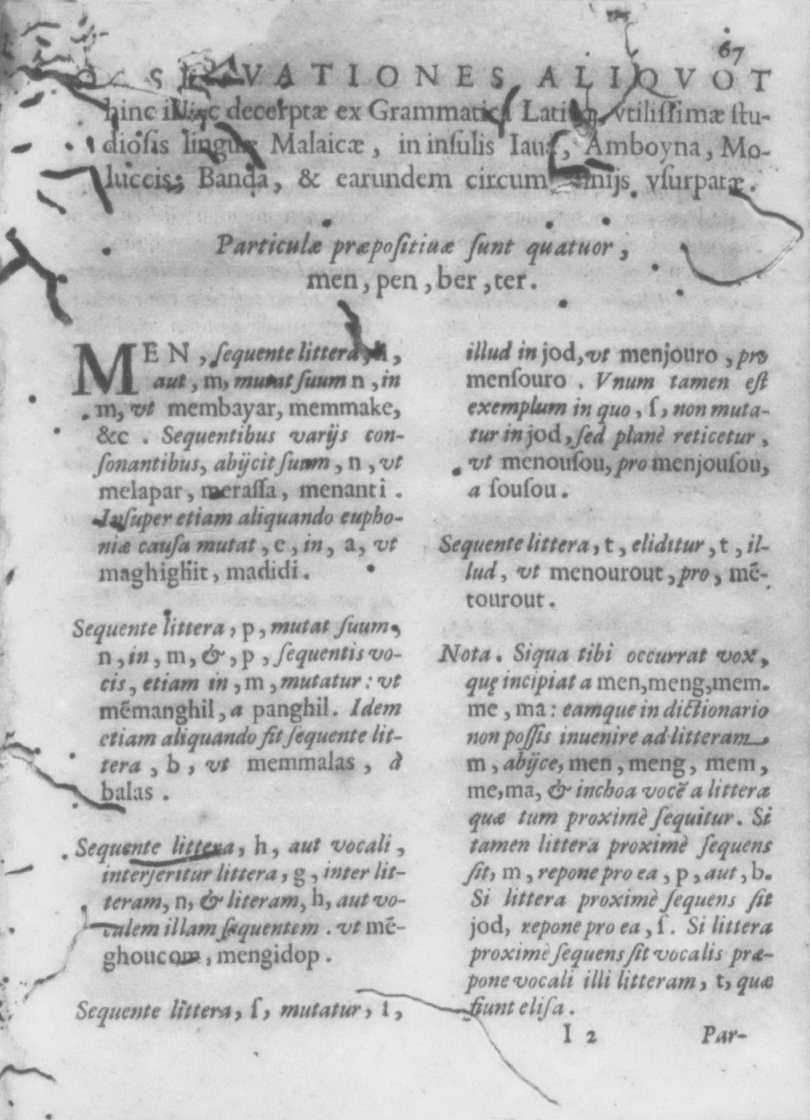 67
OBSERVATIONES ALIQVOT
hinc illinc decerptæ ex Grammatica Latina, vtilissimæ stu-
diosis linguæ Malaicæ, in insulis Iaua, Amboyna, Mo-
luccis, Banda, & earundem circumuicinijs vsurpatæ.
Particulæ præpositiuæ sunt quatuor,
men, pen, ber, ter.
MEN, sequente littera, h,
aut, m, mutat suum n, in
m, vt membayar, memmake,
&c. Sequentibus varijs con-
sonantibus, abijcit suum, n, vt
melapar, merassa, menanti.
Insuper etiam aliquando eupho-
niæ causa mutat, e, in, a, vt
maghighit, madidi.
Sequente littera, p, mutat suum,
n, in, m, &, p, sequentis vo-
cis, etiam in, m, mutatur: vt
mẽmanghil, a panghil. Idem
etiam aliquando fit sequente lit-
tera, b, vt memmalas, à
balas.
Sequente littera, h, aut vocali,
interseritur littera, g, inter lit-
teram, n, & literam, h, aut vo-
calem illam sequentem. vt mẽ-
ghoucom, mengidop.
Sequente littera, ſ, mutatur, i,
illud in jod, vt menjouro, pro
mensouro. Vnum tamen est
exemplum in quo, ſ, non muta-
tur in jod, sed planè reticetur,
vt menousou, pro menjousou,
a sousou.
Sequente littera, t, eliditur, t, il-
lud, vt menourout, pro, mẽ-
tourout.
Nota. Siqua tibi occurrat vox,
quę incipiat a men, meng, mem.
me, ma: eamque in dictionario
non possis inuenire ad litteram
m, abijce, men, meng, mem,
me, ma, & inchoa vocẽ a littera
quæ tum proximè sequitur. Si
tamen littera proximè sequens
sit, m, repone pro ea, p, aut, b.
Si littera proximè sequens sit
jod, repone pro ea, ſ. Si littera
proximè sequens sit vocalis præ-
pone vocali illi litteram, t, quæ
fiunt elisa.
I 2 Par-